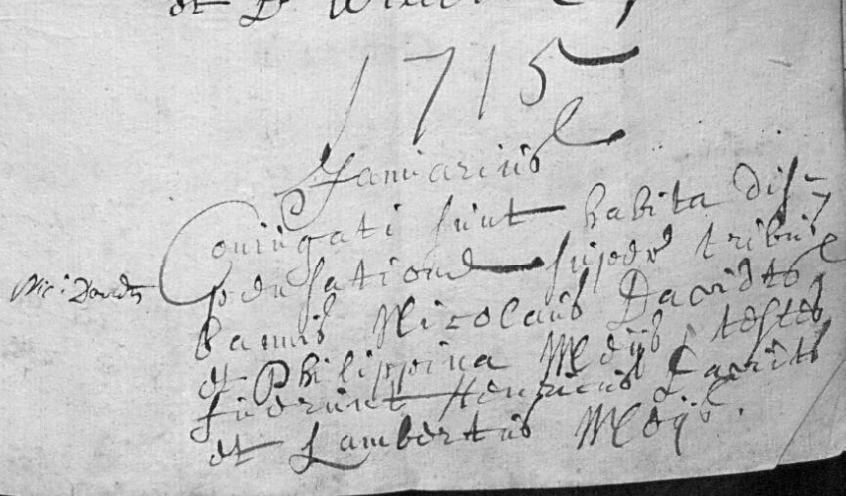 et D
1715
Januarius
Coniugati sunt habita dis-
pensatione super tribus
Nic: Davidts
bannis Nicolaus Davidts
et Philippina Meijs, testes
fuerunt Henricus Davidts
et Lambertus Meijs.